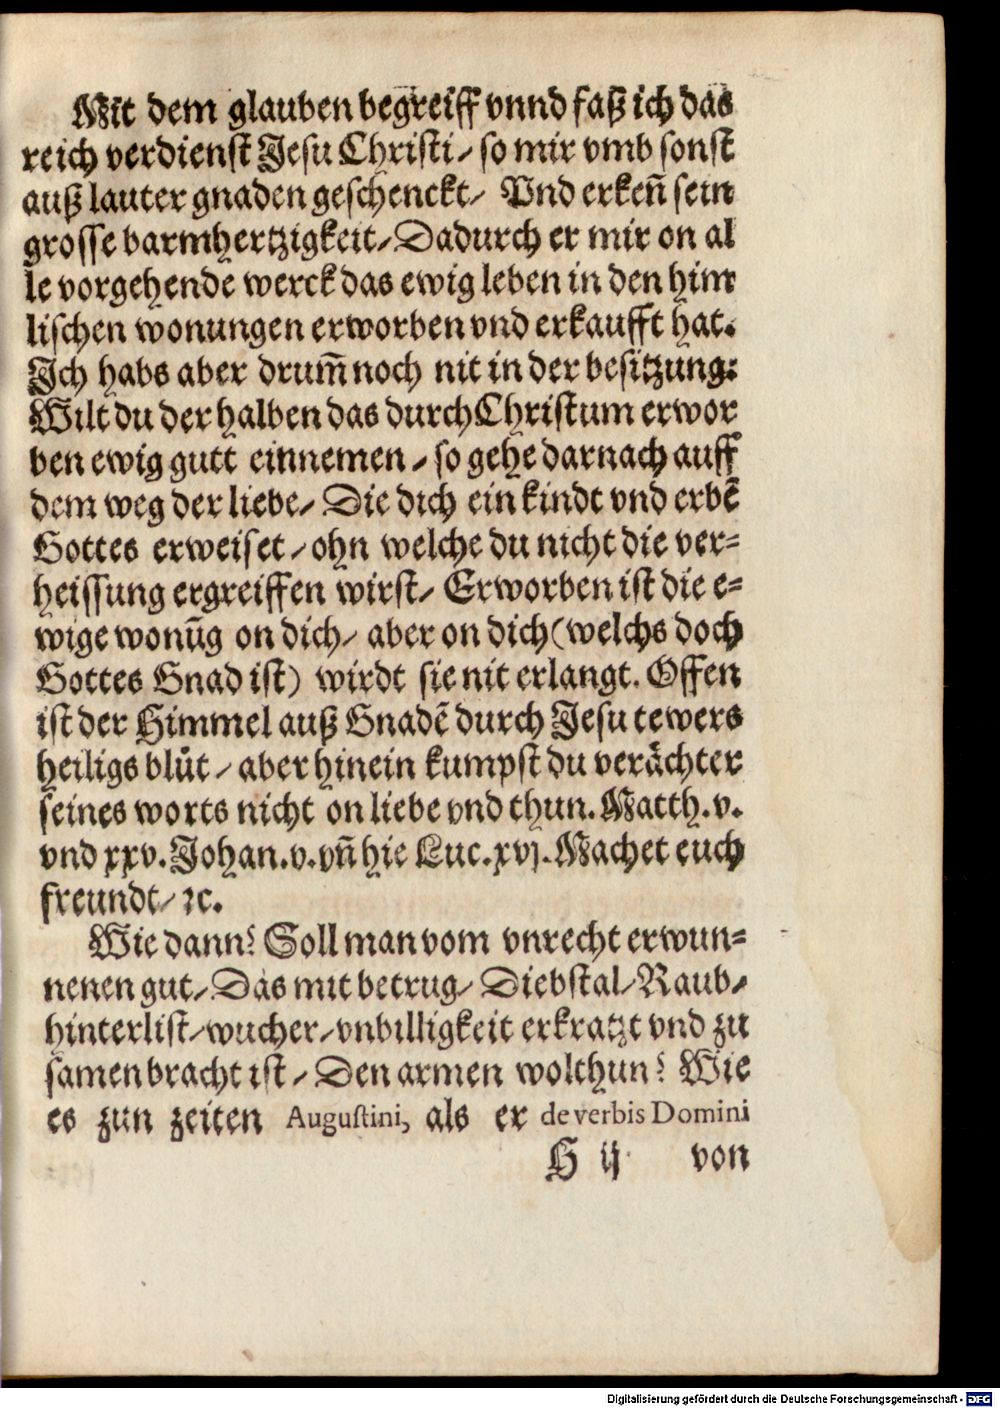 Mit dem glauben begreiff vnnd faß ich das
reich verdienst Jesu Christi/ so mir vmb sonst
auß lauter gnaden geschenckt/ Vnd erkeñ sein
grosse barmhertzigkeit/ Dadurch er mir on al
le vorgehende werck das ewig leben in den him
lischen wonungen erworben vnd erkaufft hat.
Ich habs aber drum̃ noch nit in der besitzung:
Wilt du der halben das durch Christum erwor
ben ewig gutt einnemen/ so gehe darnach auff
dem weg der liebe/ Die dich ein kindt vnd erbẽ
Gottes erweiset/ ohn welche du nicht die ver-
heissung ergreiffen wirst/ Erworben ist die e-
wige wonũg on dich/ aber on dich (welchs doch
Gottes Gnad ist) wirdt sie nit erlangt. Offen
ist der Himmel auß Gnadẽ durch Jesu tewers
heiligs blůt/ aber hinein kumpst du verächter
seines worts nicht on liebe vnd thun. Matth. v.
vnd xxv. Johan. v. vñ hie Luc. xvj. Machet euch
freundt/ ꝛc.
Wie dann? Soll man vom vnrecht erwun-
nenen gut/ Das mit betrug/ Diebstal/ Raub/
hinterlist/ wucher/ vnbilligkeit erkratzt vnd zu
samen bracht ist/ Den armen wolthun? Wie
es zun zeiten Augustini, als er de verbis Domini
H ij von
Digitalisierung gefördert durch die Deutsche Forschungsgemeinschaft - DFG